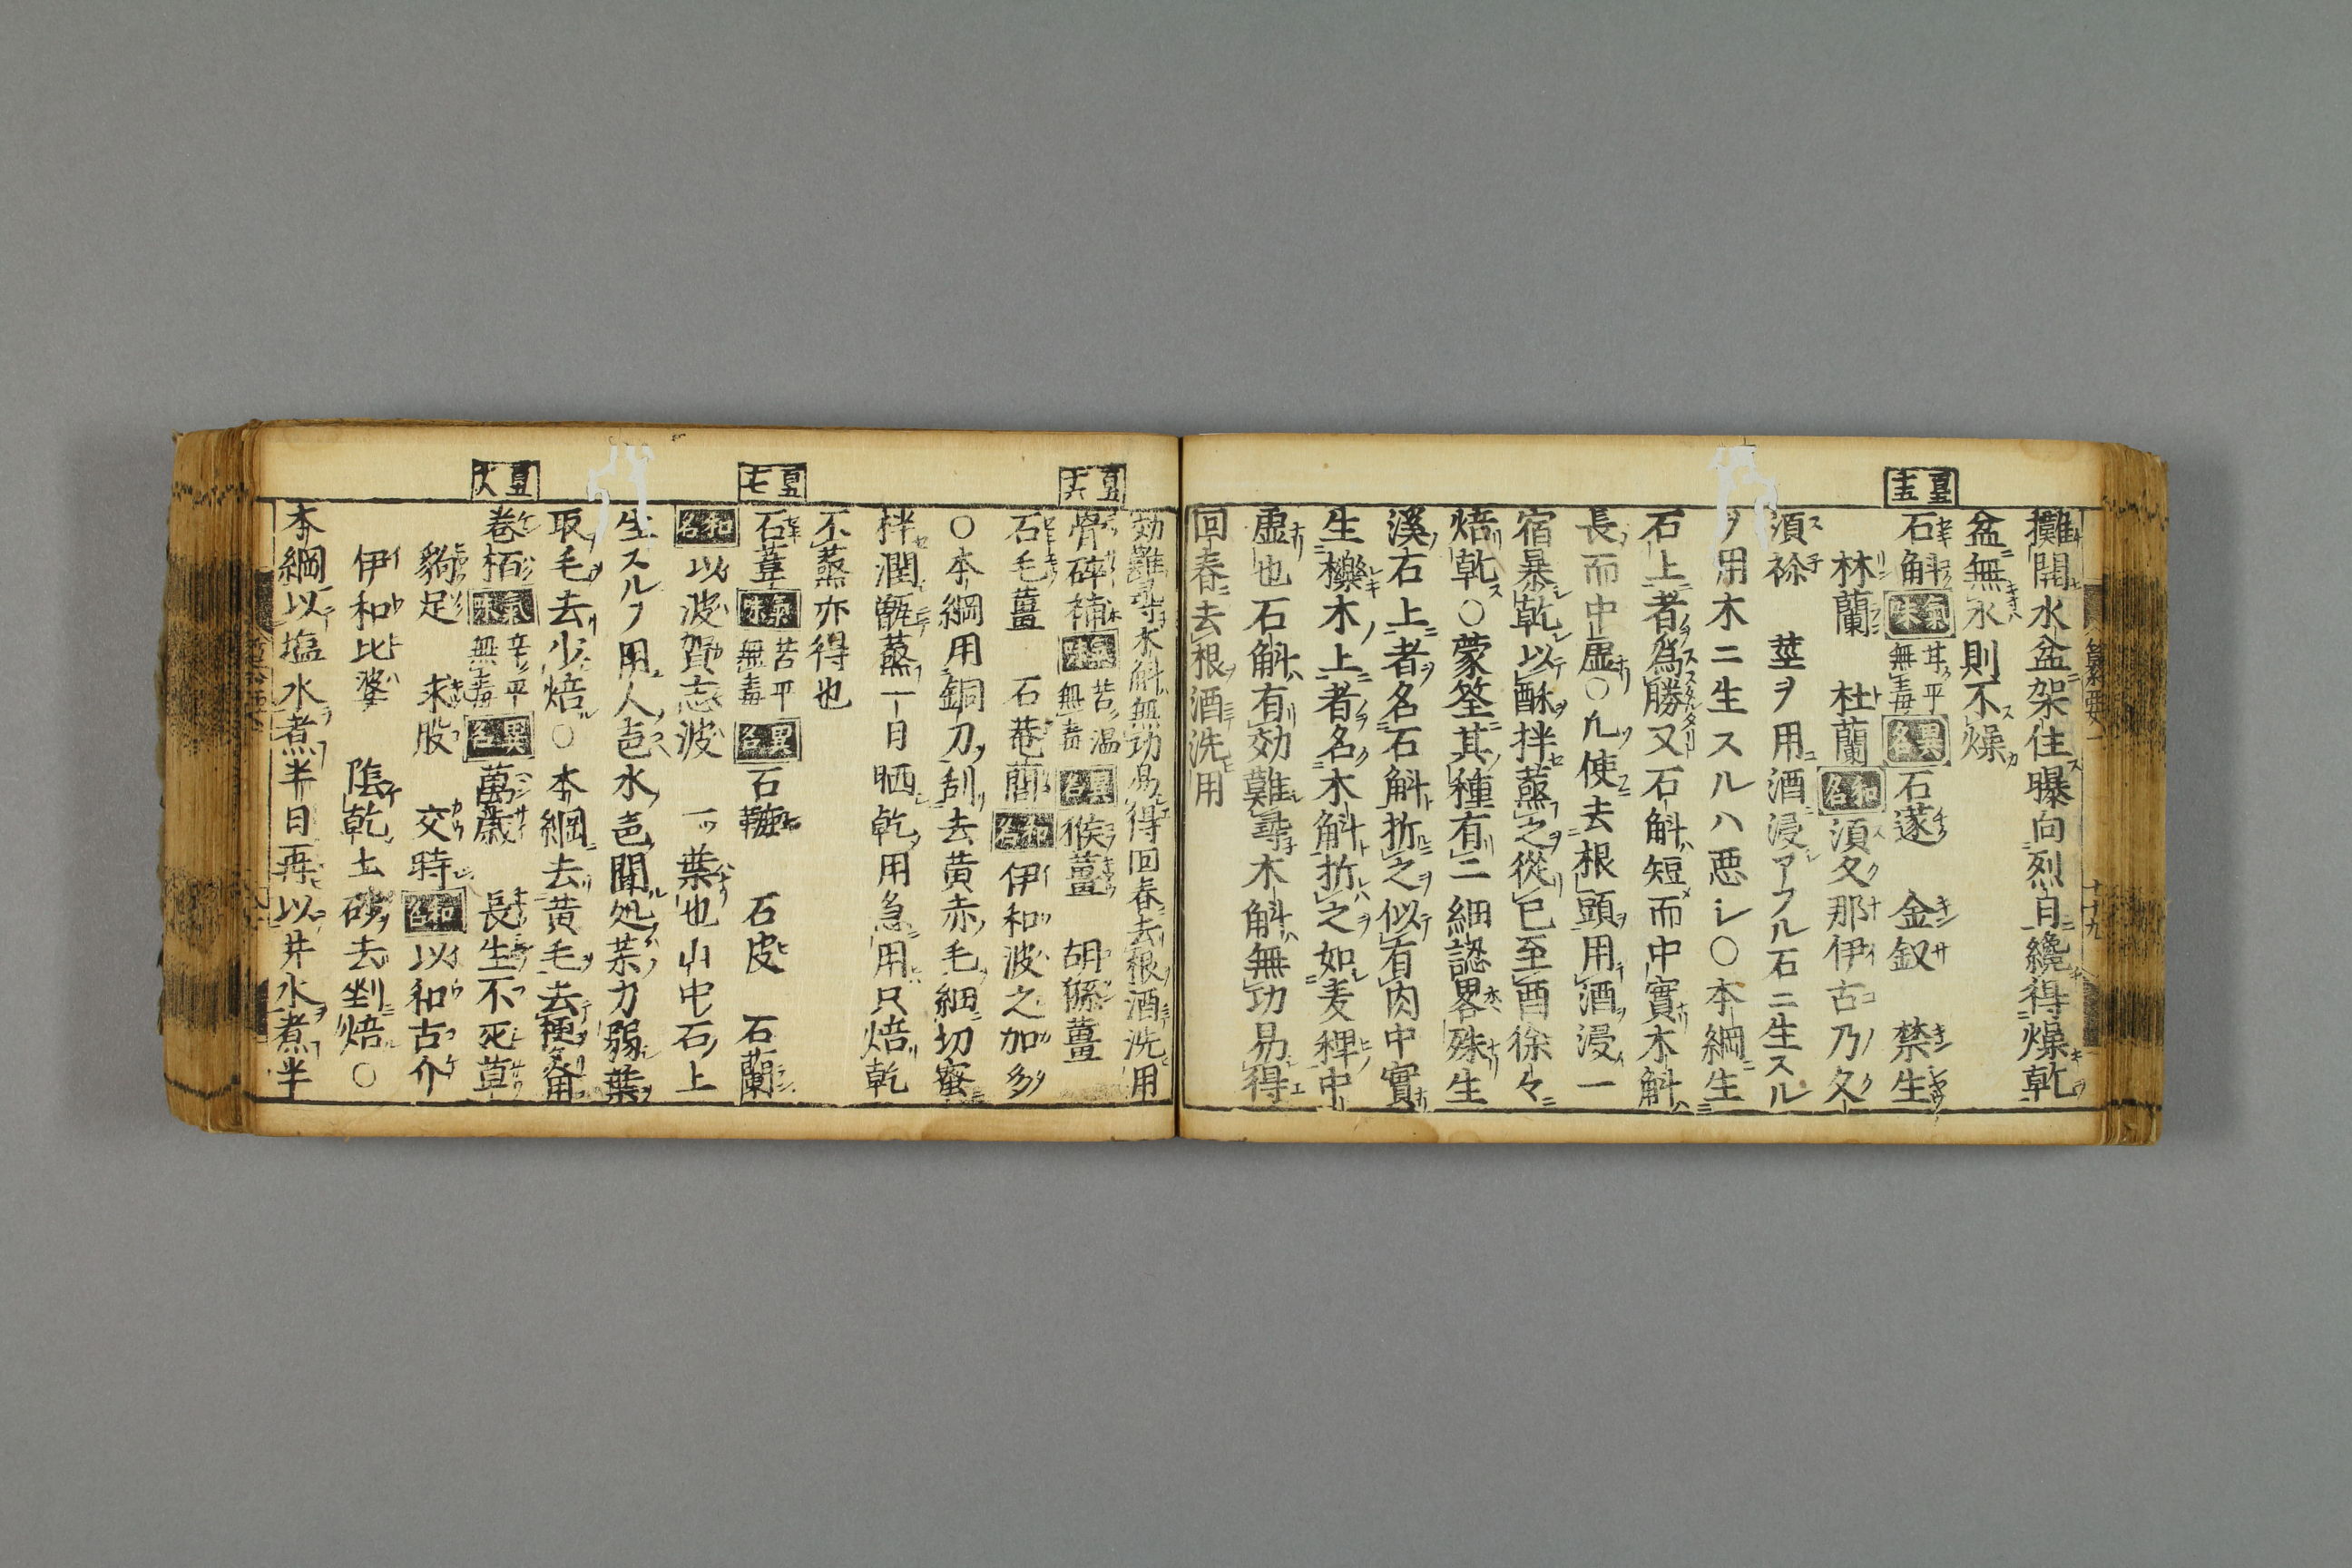 攤開水盆架住曝向烈日纔得燥乾
盆無水則不燥
石斛 氣味 甘平無毒 異名 石蓫 金釵 禁生
林蘭 杜蘭 和名 須久那伊古乃久
須祢 莖ヲ用酒浸アフル石ニ生スル
ヲ用木ニ生スルハ悪シ○本綱生
石上者為勝又石斛短而中實木斛
長而中虚○凡使去根頭用酒浸一
宿暴乾以酥拌蒸之從巳至酉徐々
焙乾○蒙筌其種有二細認畧殊生
溪石上者名石斛折之似有肉中實
生櫟木上者名木斛折之如麦稈中
虚也石斛有効難尋木斛無功易得
回春去根酒洗用
効難尋木斛無功易得回春去根酒洗用
骨碎補 氣味 苦温無毒 異名 猴薑 胡猻薑
石毛薑 石菴䕡 和名 伊和波之加多
○本綱用銅刀刮去黄赤毛細切蜜
拌潤甑蒸一日晒乾用急用只焙乾
不蒸亦得也
石葦 氣味 苦平無毒 異名 石韀 石皮 石蘭
和名 以波賀志波 一ッ葉也山中石上
生スルヲ用人邑水邑聞処葉力弱葉
取毛去少焙○本綱去黄毛去梗用
巻栢 氣味 辛平無毒 異名 萬歳 長生不死草
豹足 求股 交時 和名 以和古介
伊和比婆 陰乾土砂去剉焙○
本綱以塩水煮半日再以井水煮半